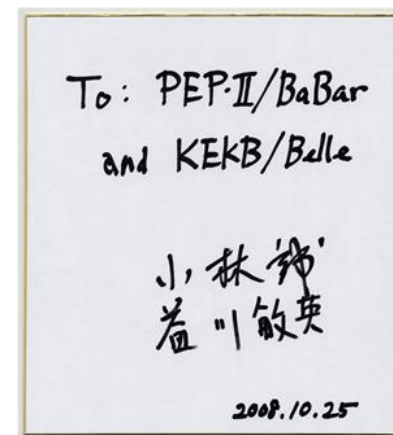 To: PEP-II/BaBar
and KEKB/Belle
小林誠
益川敏英
2008.10.25